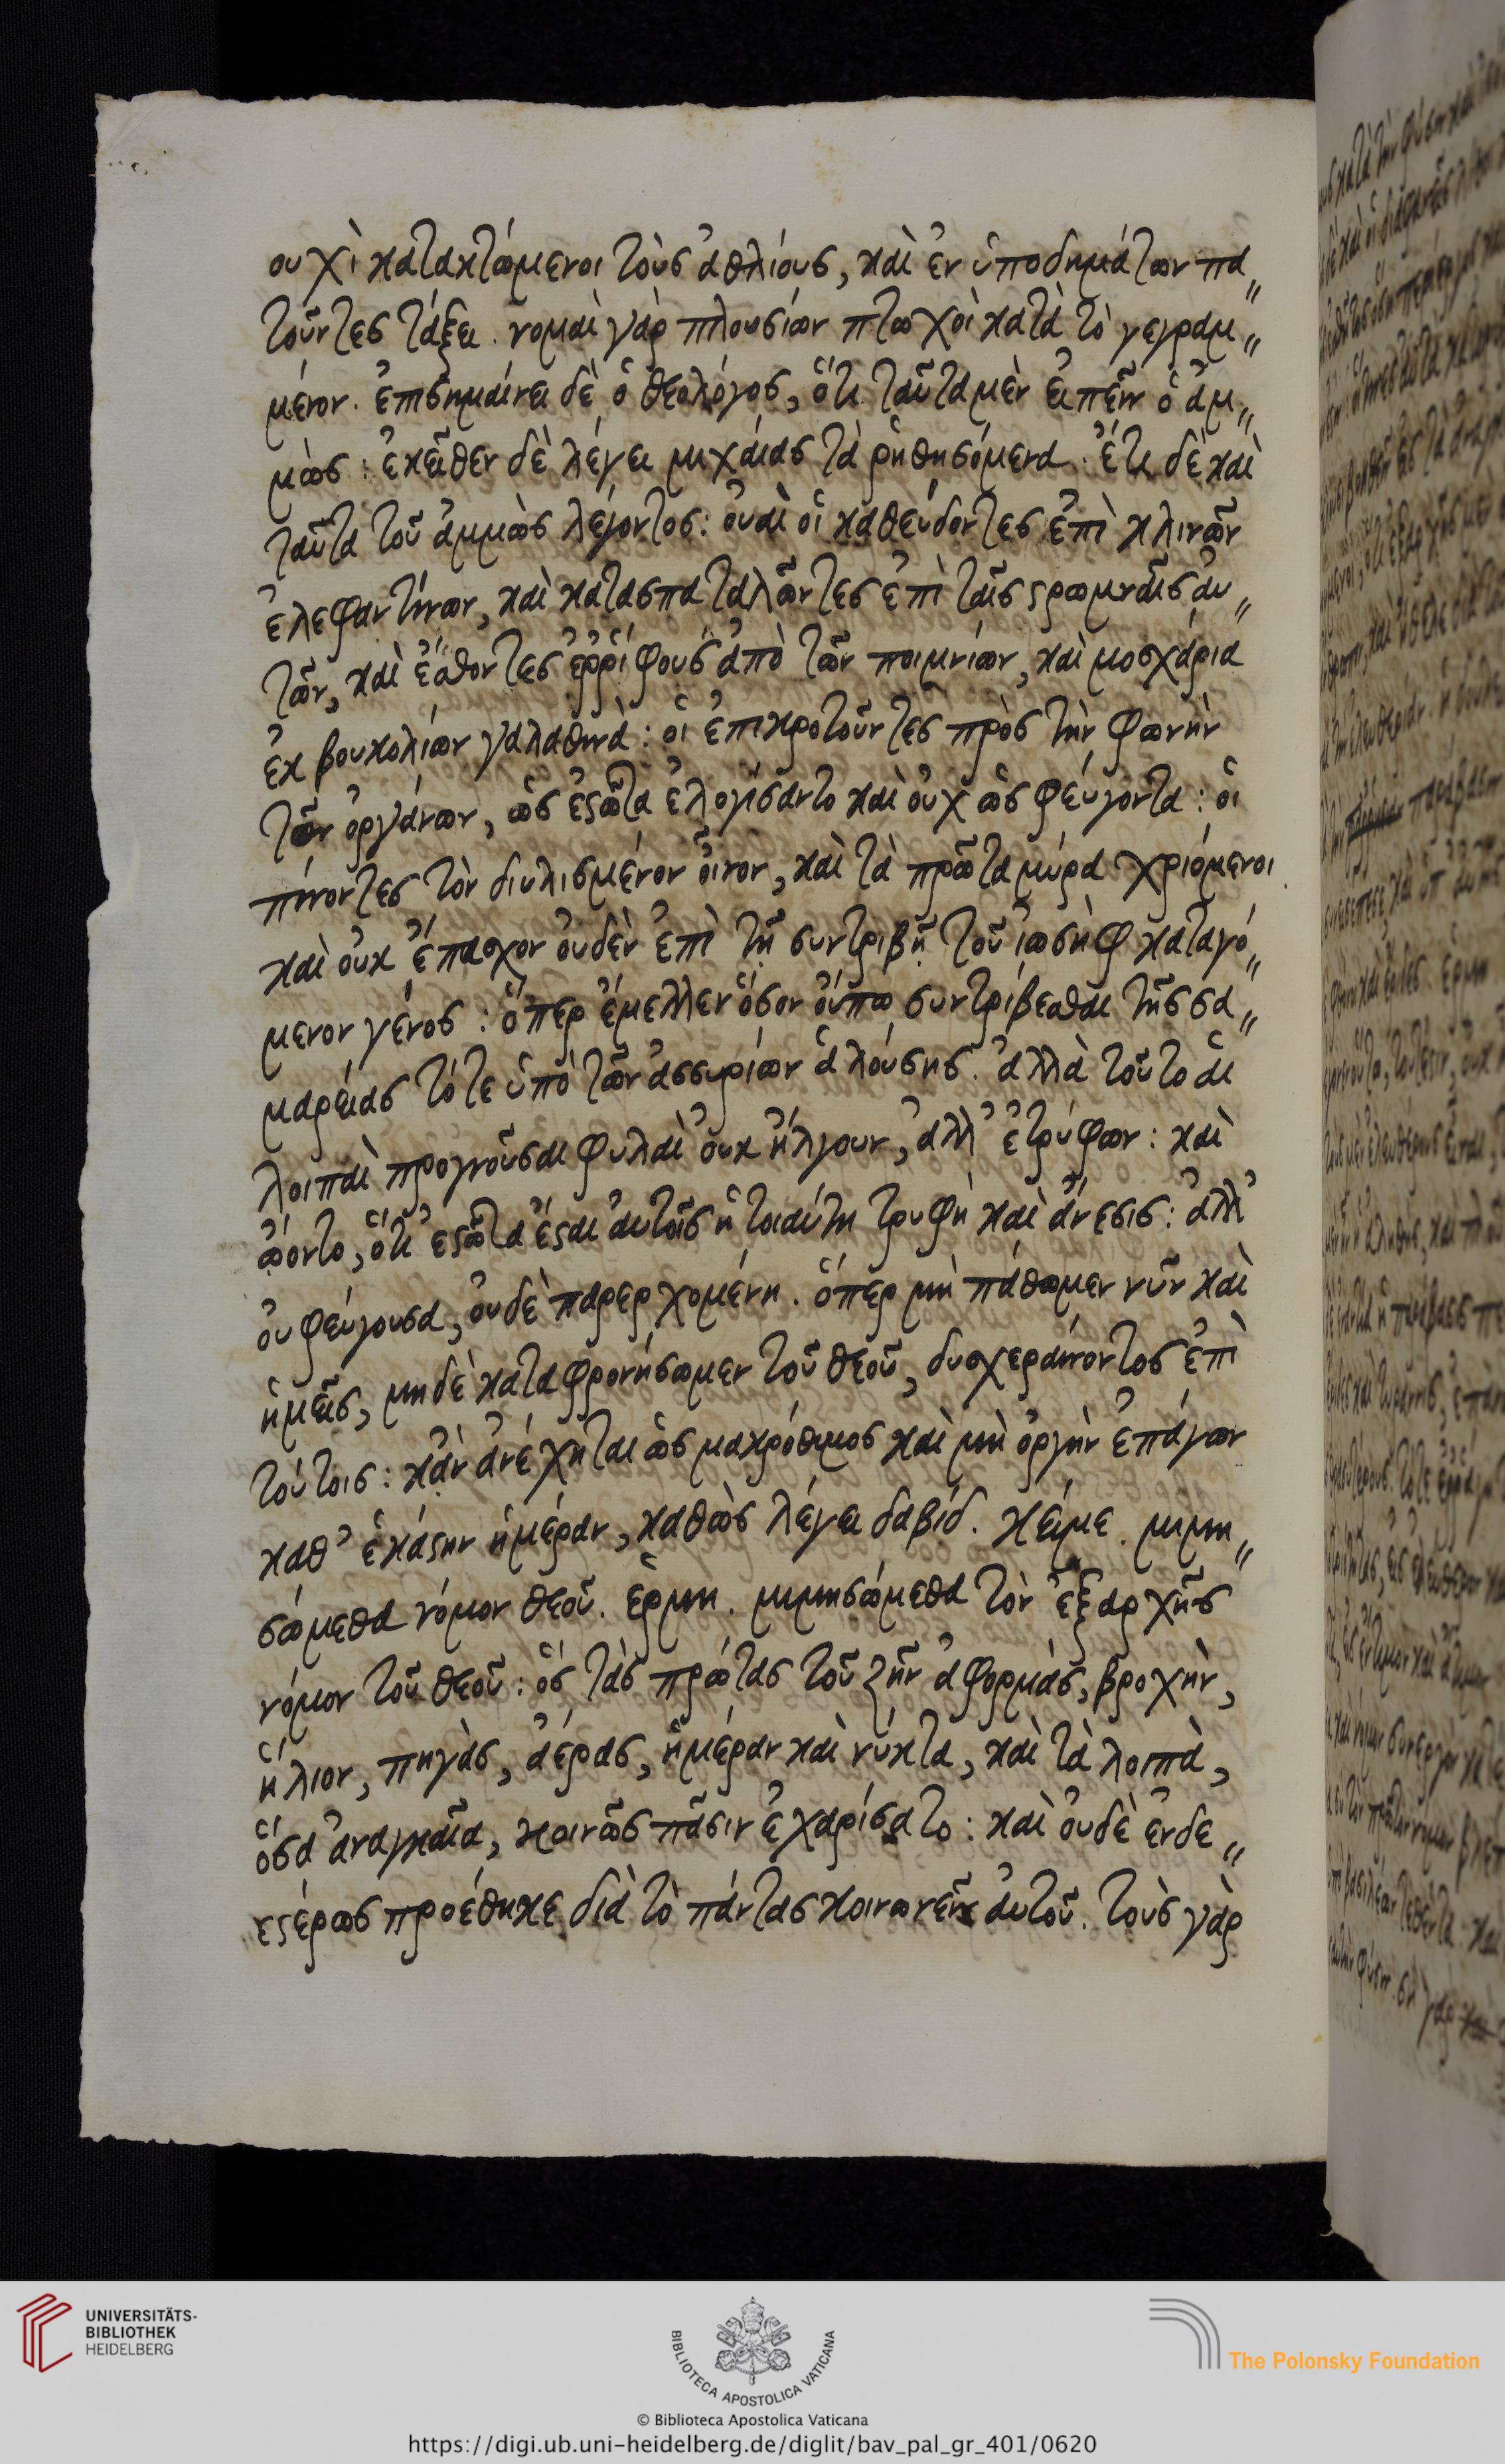 ουχὶ κατακτώμενοι τοὺς ἀθλίους, καὶ ἐν ὑποδημάτων πα„
τοῦντες τάξει. νομαὶ γὰρ πλουσίων πτωχοὶ κατὰ τὸ γεγραμ„
μένον. ἐπισημαίνει δὲ ὁ θεολόγος, ὅτι ταῦτα μὲν εἰπεῖν ὁ ἀμ„
μὼς: ἐκεῖθεν δὲ λέγει μιχαίας τὰ ῥηθησόμενα. ἔτι δὲ καὶ
ταῦτα τοῦ ἀμμὼς λέγοντος: οὐαὶ οἱ καθεύδοντες ἐπὶ κλινῶν
ἐλεφαντίνων, καὶ κατασπαταλῶντες ἐπὶ ταῖς ϛρωμναῖς ἀυ„
τῶν, καὶ ἔσθοντες ἐῤῥίφους ἀπὸ τῶν ποιμνίων, καὶ μοσχάρια
ἐκ βουκολίων γαλαθινὰ: οἱ ἐπικροτοῦντες πρὸς τὴν φωνὴν
τῶν ὀργάνων, ὡς ἑϛῶτα ἐλογίσαντο καὶ οὐχ ὡς φεύγοντα: οἱ
πίνοντες τὸν διυλισμένον οἶνον, καὶ τὰ πρῶτα μύρα χριόμενοι
καὶ οὐκ ἔπασχον οὐδὲν ἐπὶ τῇ συντριβῇ τοῦ ἰωσὴφ καταγό„
μενον γένος: ὅπερ ἔμελλεν ὅσον οὔπω συντρίβεσθαι τῆς σα„
μαρείας τότε ὑπὸ τῶν ἀσσυρίων ἁλούσης. ἀλλὰ τοῦτο αἱ
λοιπαὶ προγνοῦσαι φυλαὶ οὐκ ἤλγουν, ἀλλ' ἐτρύφων: καὶ
ᾤοντο, ὅτι ἑϛῶτα ἔϛαι ἀυταῖς ἡ τοιαύτη τρυφὴ καὶ ἄνεσις: ἀλλ'
οὐ φεύγουσα, οὐδὲ παρερχομένη. ὅπερ μὴ πάθωμεν νῦν καὶ
ἡμεῖς, μηδὲ καταφρονήσωμεν τοῦ θεοῦ, δυσχεραίνοντος ἐπὶ
τούτοις: κἂν ἀνέχηται ὡς μακρόθυμος καὶ μὴ ὀργὴν ἐπάγων
καθ' ἑκάϛην ἡμέραν, καθὼς λέγει δαβίδ. κείμε. μιμη„
σώμεθα νόμον θεοῦ. ἑρμη. μιμησώμεθα τὸν ἐξαρχῆς
νόμον τοῦ θεοῦ: ὃς τὰς πρώτας τοῦ ζῆν ἀφορμάς, βροχὴν,
ἥλιον, πηγὰς, ἀέρας, ἡμέραν καὶ νύκτα, καὶ τὰ λοιπὰ,
ὅσα ἀναγκαῖα, κοινῶς πᾶσιν ἐχαρίσατο: καὶ οὐδὲ ἐνδε„
εϛέρως προέθηκε, διὰ τὸ πάντας κοινωνεῖν ἀυτοῦ. τοὺς γὰρ
UNIVERSITÄTS-
BIBLIOTHEK
HEIDELBERG
BIBLIOTECA APOSTOLICA VATICANA
The Polonsky Foundation
© Biblioteca Apostolica Vaticana
https://digi.ub.uni-heidelberg.de/diglit/bav_pal_gr_401/0620